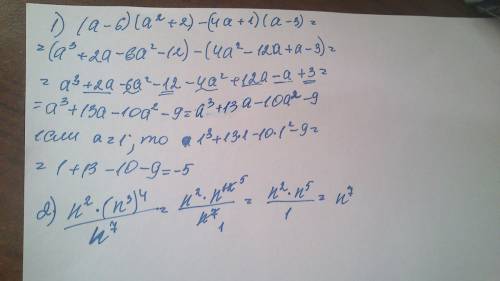 1) (a-6)(a²+2)-(4a+1)(a-3)=
=(a³+2a-6a²-12)-(4a²-12a+a-3)=
=a³+2a-6a²-12-4a²+12a-a+3=
=a³+13a-10a²-9=a³+13a-10a²-9
если a=1, то 1³+13·1-10·1²-9=
=1+13-10-9=-5
2) n²·(n³)⁴/n⁷ = n²·n¹²⁵/n⁷ 1 = n²·n⁵/1 = n⁷